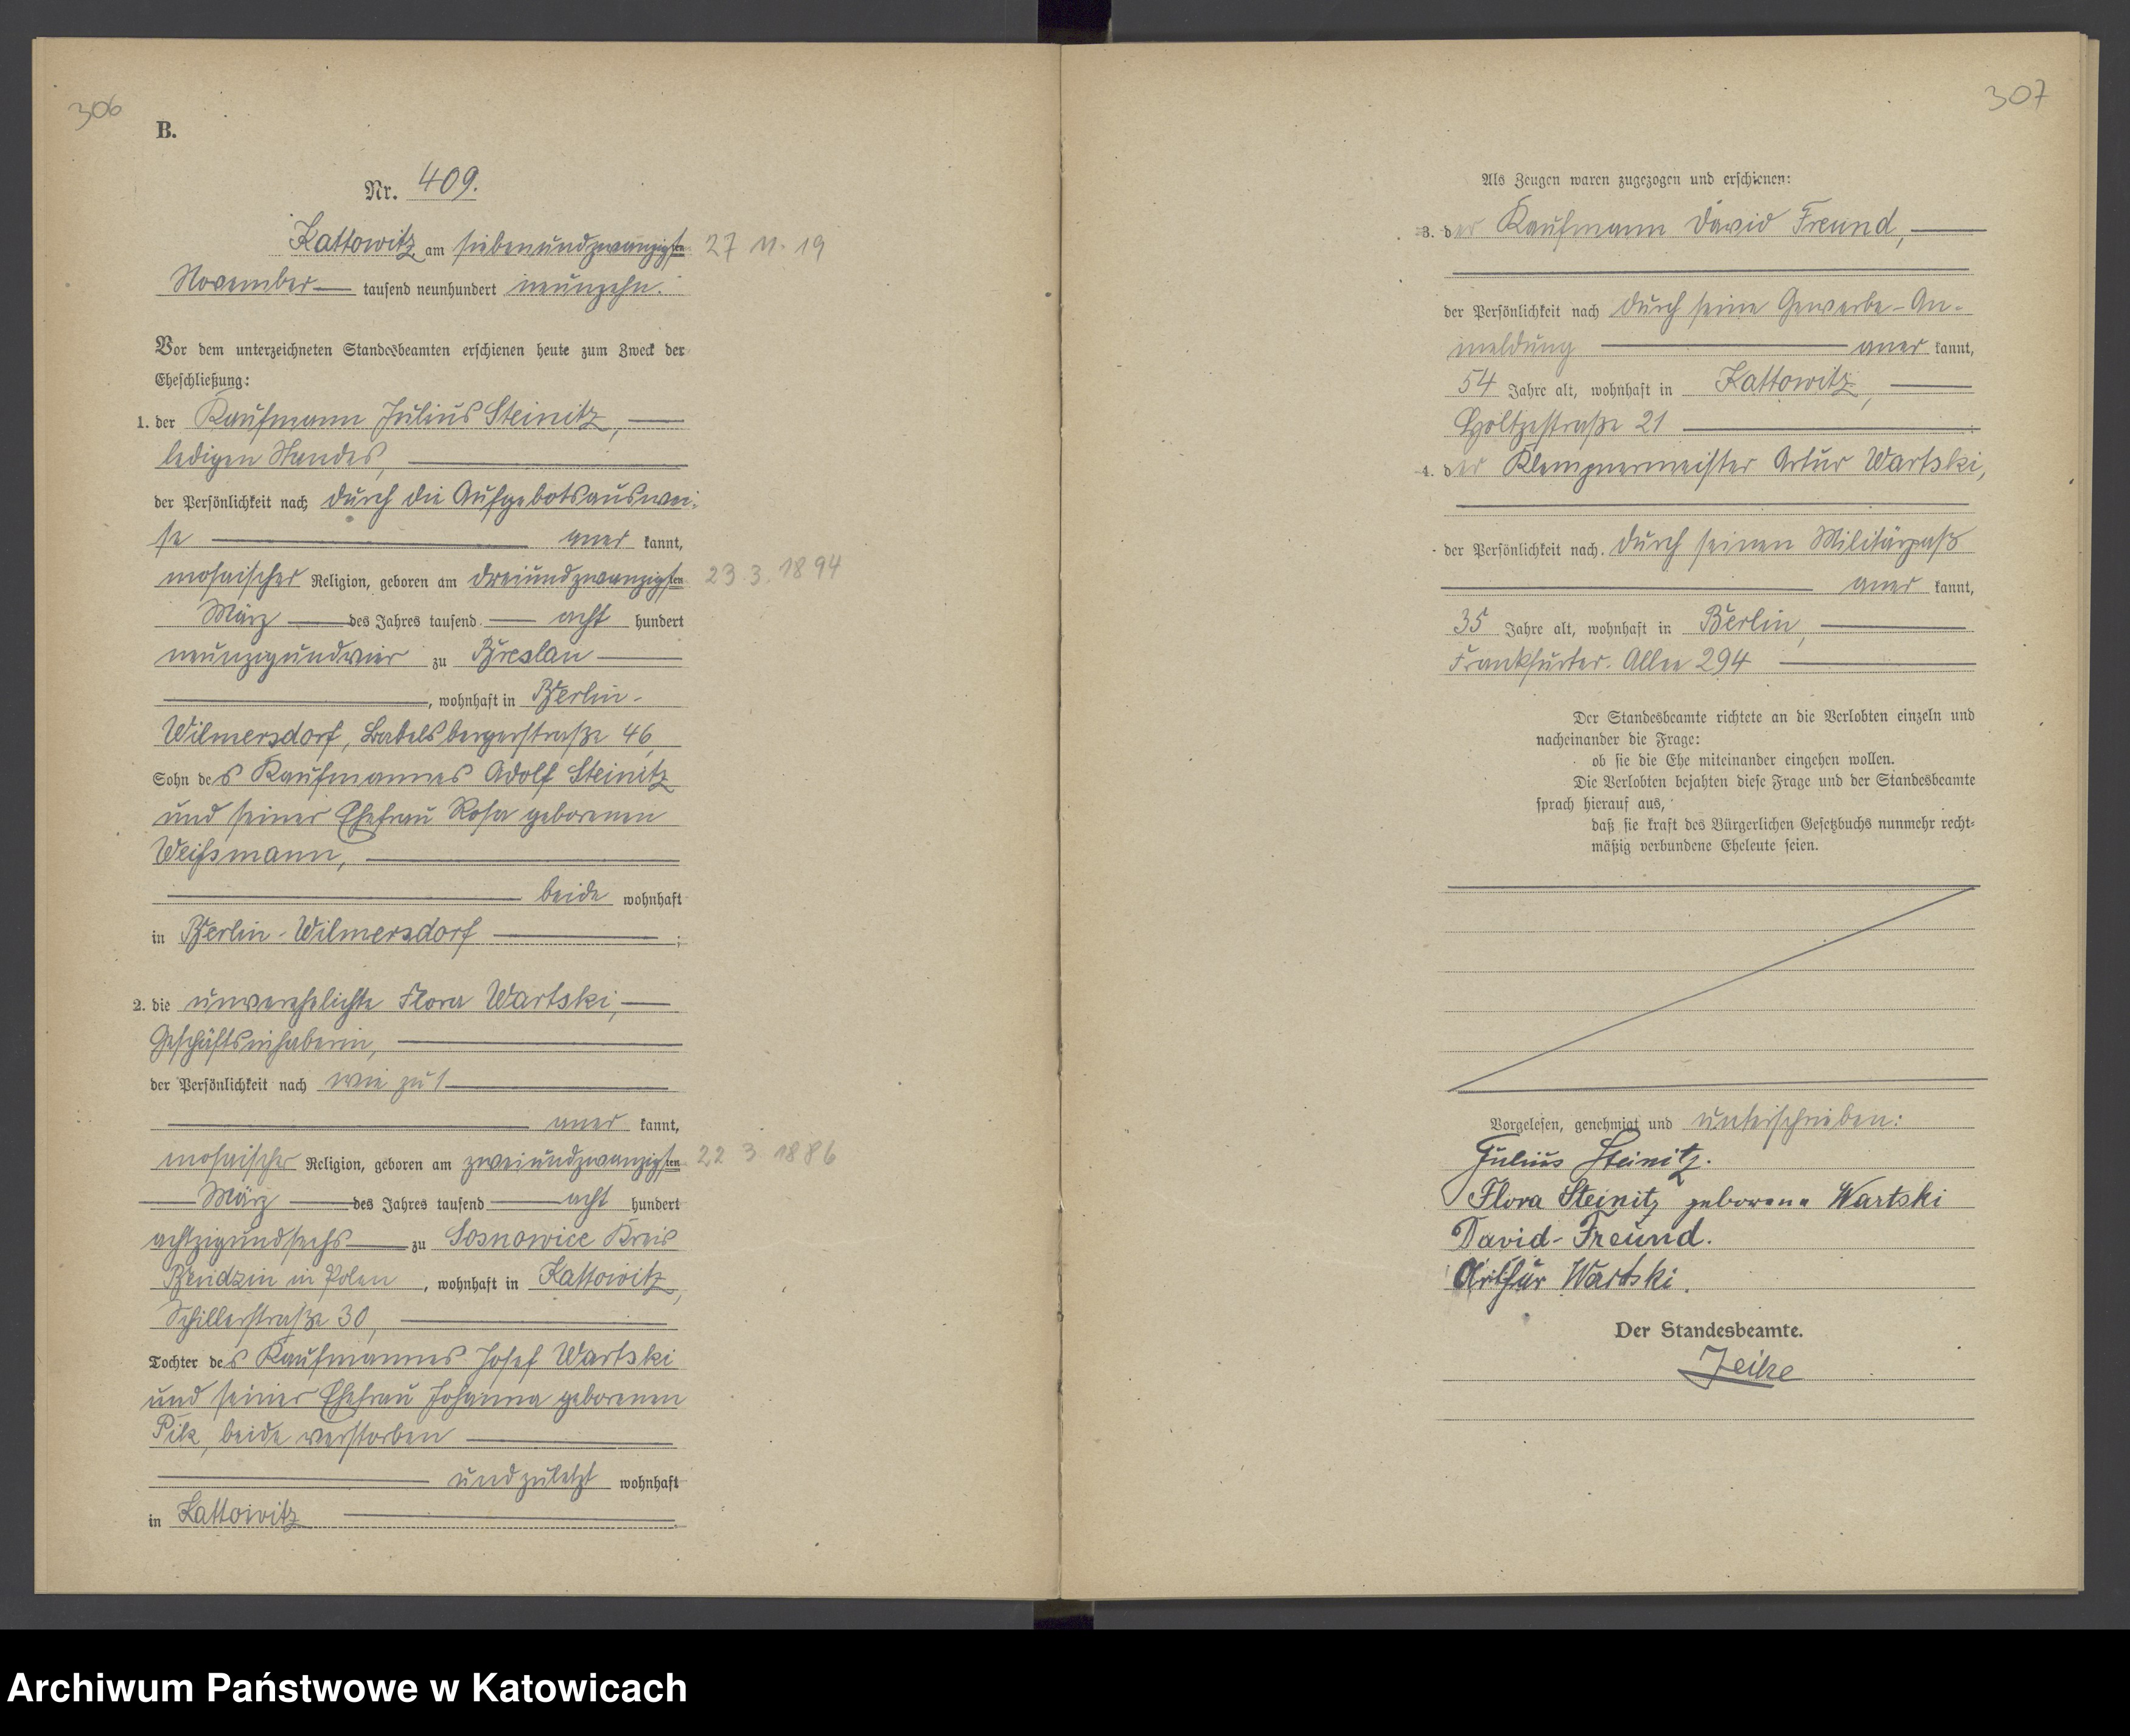 306
B.
Nr. 409.
Kattowitz, am siebenundzwanzigsten 27 11. 19
November tausend neunhundert neunzehn.
Vor dem unterzeichneten Standesbeamten erschienen heute zum Zweck der
Eheschließung:
1. der Kaufmann Julius Steinitz,
ledigen Standes,
der Persönlichkeit nach durch die Aufgebotsauswei-
se aner kannt,
mosaischer Religion, geboren am dreiundzwanzigsten 23. 3. 1894
März des Jahres tausend acht hundert
neunzigundvier zu Breslau
, wohnhaft in Berlin-
Wilmersdorf, Babelsbergerstraße 46,
Sohn des Kaufmannes Adolf Steinitz
und seiner Ehefrau Rosa geborenen
Weißmann,
beide wohnhaft
in Berlin-Wilmersdorf ;
2. die unverehelichte Flora Wartski,
Geschäftsinhaberin,
der Persönlichkeit nach wie zu 1
aner kannt,
mosaischer Religion, geboren am zweiundzwanzigsten 22 3 1886
März des Jahres tausend acht hundert
achtzigundsechs zu Sosnowice Kreis
Bendzin in Polen, wohnhaft in Kattowitz,
Schillerstraße 30,
Tochter des Kaufmannes Josef Wartski
und seiner Ehefrau Johanna geborenen
Pilz, beide verstorben
und zuletzt wohnhaft
in Kattowitz
307
Als Zeugen waren zugezogen und erschienen:
3. der Kaufmann David Freund,
der Persönlichkeit nach durch seine Gewerbe-An-
meldung aner kannt,
54 Jahre alt, wohnhaft in Kattowitz,
Holtzestraße 21
4. der Klempnermeister Artur Wartski,
der Persönlichkeit nach durch seinen Militärpaß
aner kannt,
35 Jahre alt, wohnhaft in Berlin,
Frankfurter-Allee 294
Der Standesbeamte richtete an die Verlobten einzeln und
nacheinander die Frage:
ob sie die Ehe miteinander eingehen wollen.
Die Verlobten bejahten diese Frage und der Standesbeamte
sprach hierauf aus,
daß sie kraft des Bürgerlichen Gesetzbuchs nunmehr recht-
mäßig verbundene Eheleute seien.
Vorgelesen, genehmigt und unterschrieben:
Julius Steinitz.
Flora Steinitz geborene Wartski
David Freund.
Arthur Wartski.
Der Standesbeamte.
Archiwum Państwowe w Katowicach